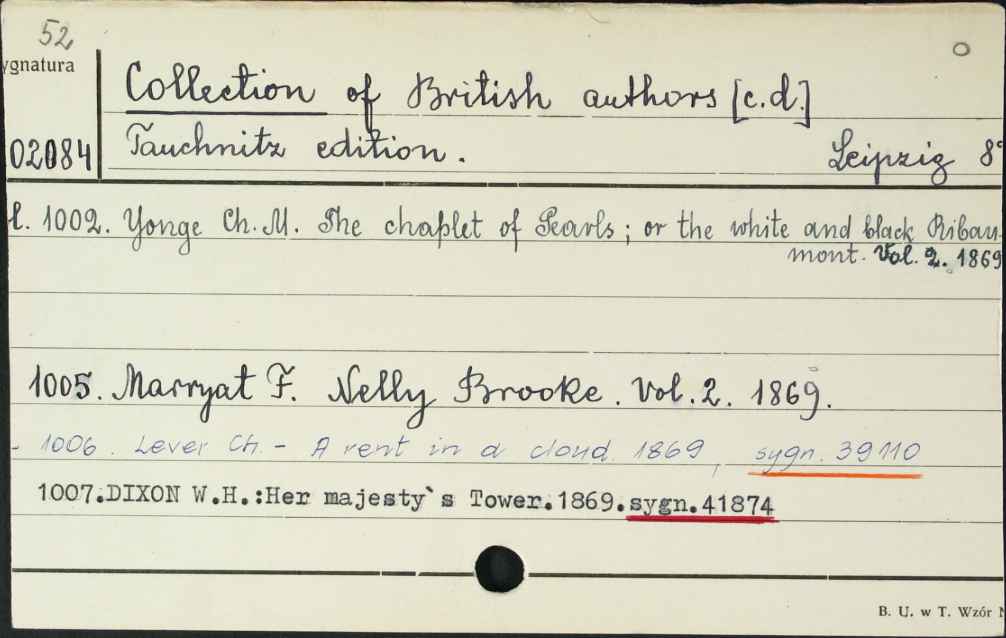 52
ygnatura
Collection of British authors [c.d.]
02084
Tauchnitz edition. Leipzig 8°
t. 1002. Yonge Ch. M. The chaplet of Pearls; or the white and black Ribau-
mont. Vol. 2. 1869
1005. Marryat F. Nelly Brooke. Vol. 2. 1869.
- 1006. Lever Ch. - A rent in a cloud. 1869, sygn. 39110
1007.DIXON W.H.:Her majesty`s Tower.1869.sygn.41874
B. U. w T. Wzór